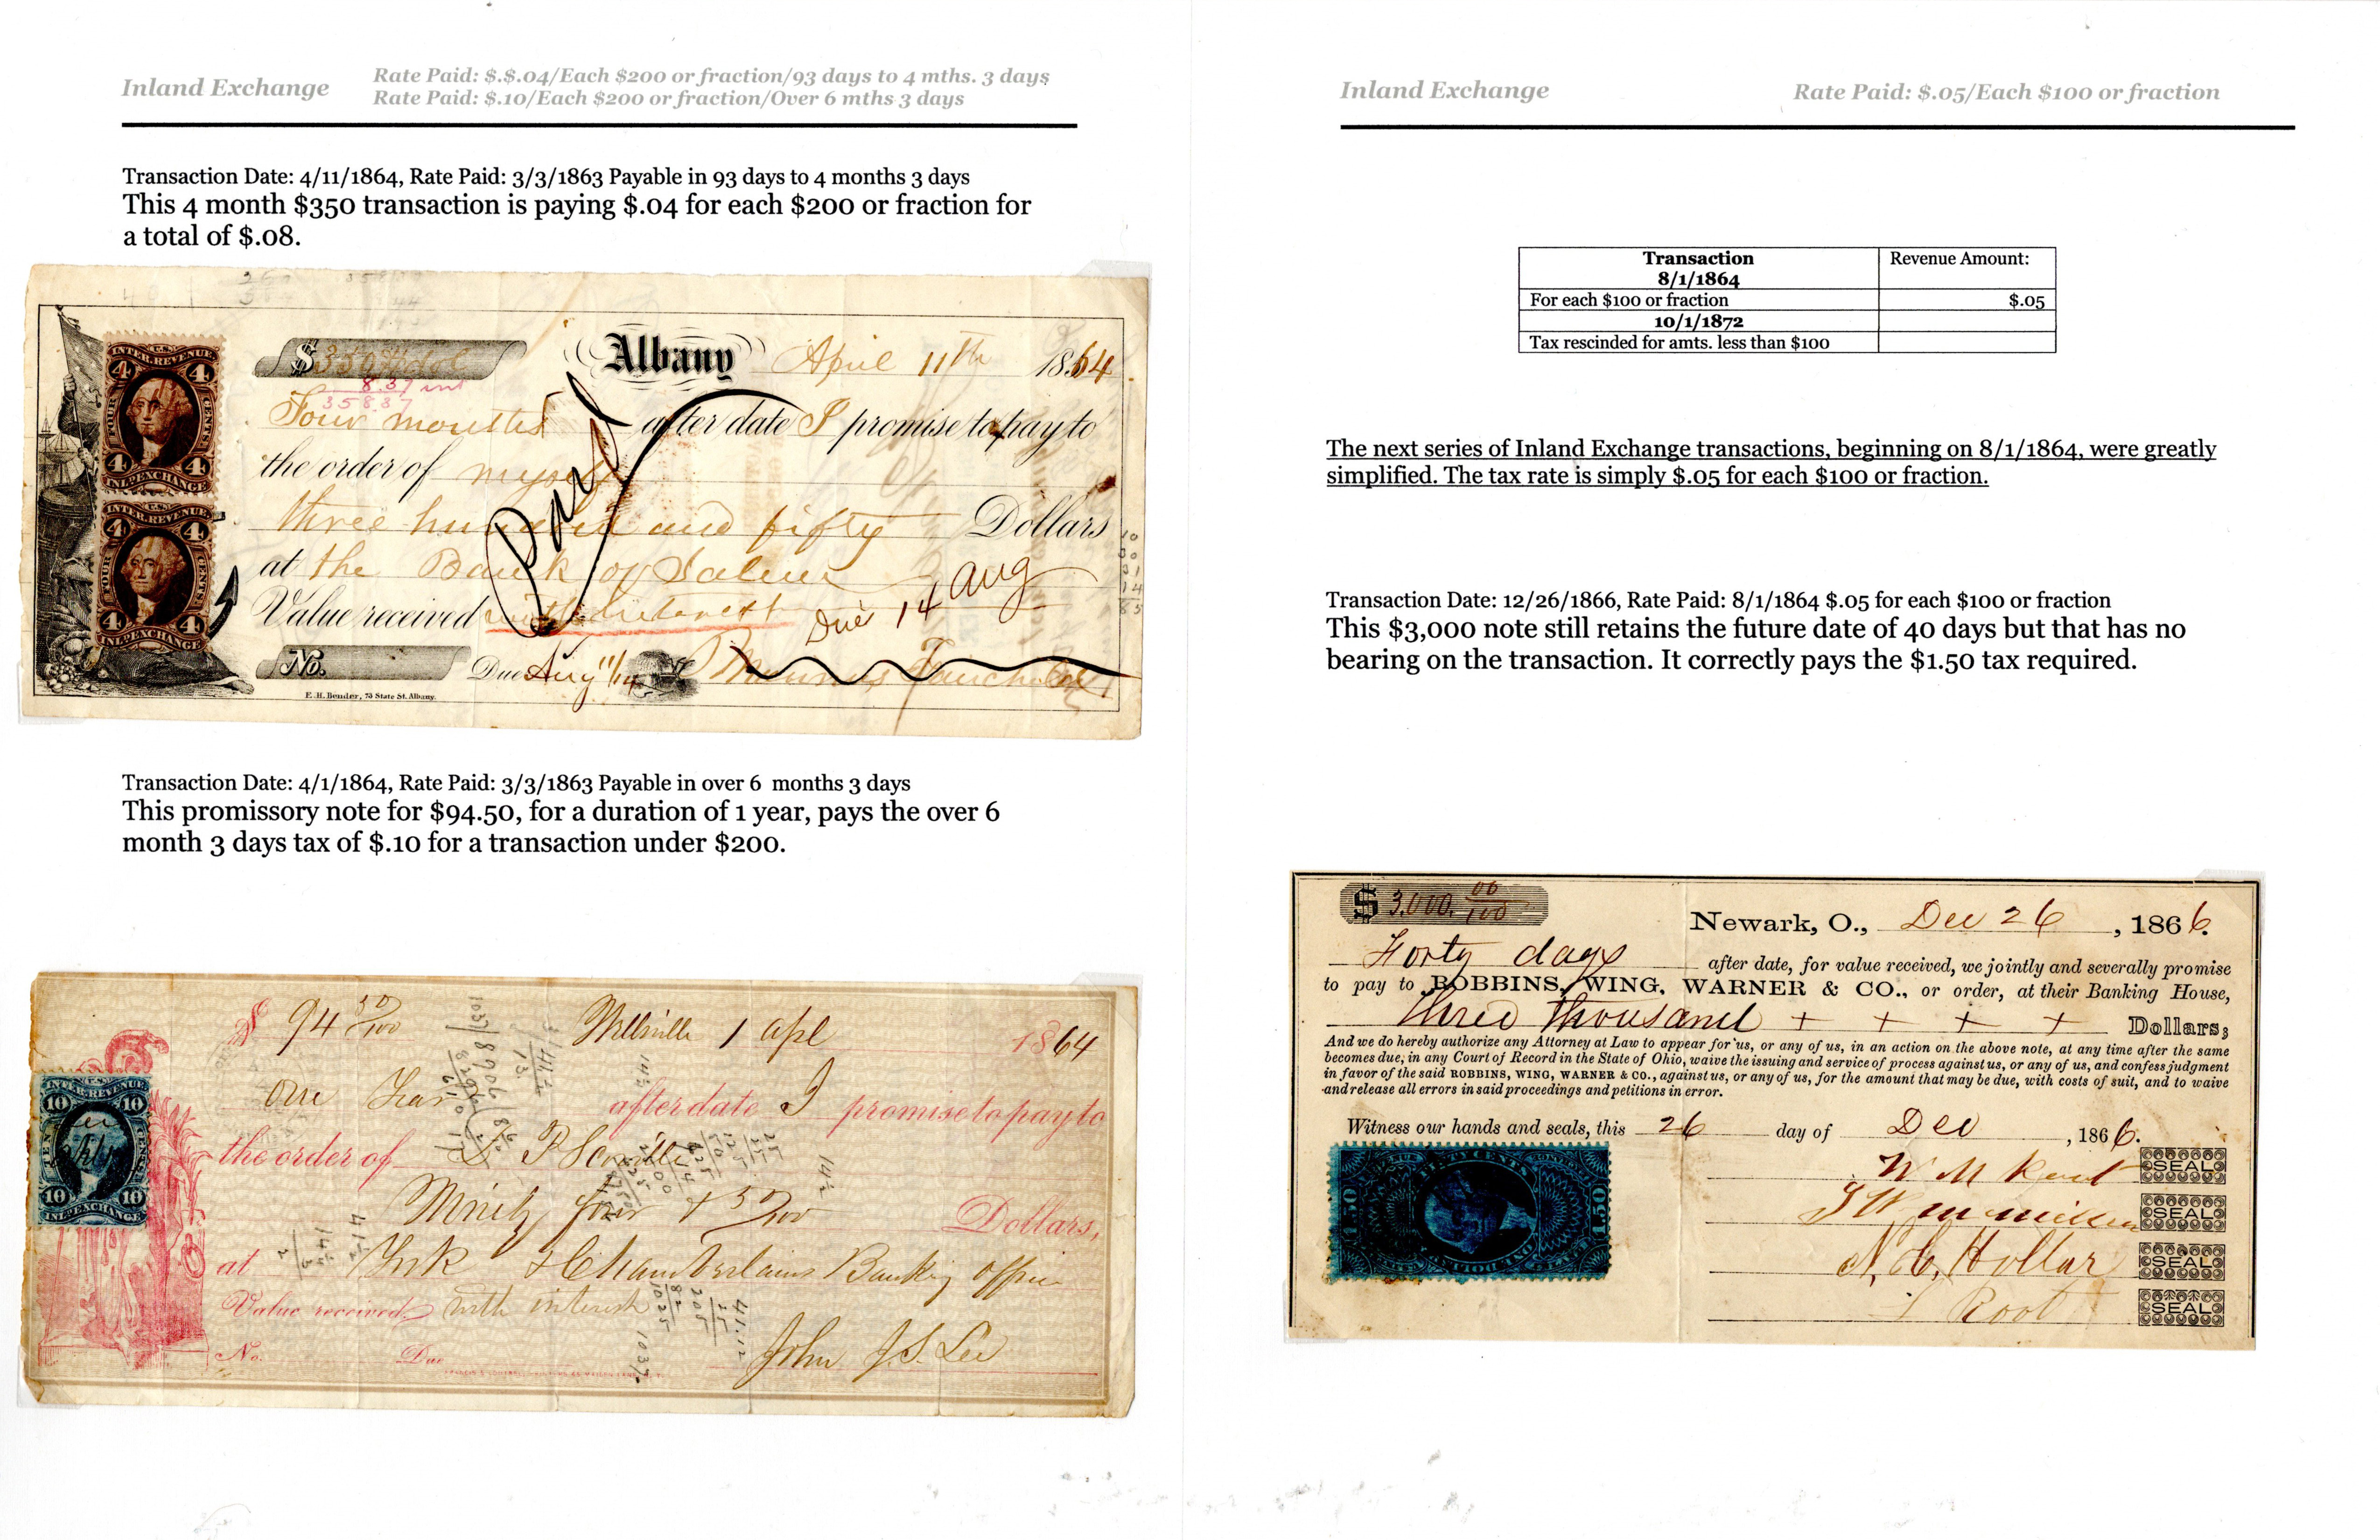 Inland Exchange
Rate Paid: $.$.04/Each $200 or fraction/93 days to 4 mths. 3 days
Rate Paid: $.10/Each $200 or fraction/Over 6 mths 3 days
Transaction Date: 4/11/1864, Rate Paid: 3/3/1863 Payable in 93 days to 4 months 3 days
This 4 month $350 transaction is paying $.04 for each $200 or fraction for
a total of $.08.
$350
8.37 int
358.37
Albany April 11th 1864
Four months after date I promise to pay to
the order of myself
three hundred and fifty Dollars
at the Bank of Salem
Value received with interest
Due 14 Aug
Paid
No. Due Aug 11/14
E. H. Bender, 73 State St. Albany.
U.S.
INTER. REVENUE
4 4
FOUR CENTS
4 4
INL. EXCHANGE
U.S.
INTER. REVENUE
4 4
FOUR CENTS
4 4
INL. EXCHANGE
Transaction Date: 4/1/1864, Rate Paid: 3/3/1863 Payable in over 6 months 3 days
This promissory note for $94.50, for a duration of 1 year, pays the over 6
month 3 days tax of $.10 for a transaction under $200.
$ 94 50/100 Millville 1 Apl 1864
One Year after date I promise to pay to
the order of
Ninety four & 50/100 Dollars,
at & Chamberlains Banking office
Value received with interest
No. Due
John J. S. Lee
U.S.
INTER. REVENUE
10 10
TEN CENTS
10 10
INL. EXCHANGE
Inland Exchange
Rate Paid: $.05/Each $100 or fraction
Transaction Revenue Amount:
8/1/1864
For each $100 or fraction $.05
10/1/1872
Tax rescinded for amts. less than $100
The next series of Inland Exchange transactions, beginning on 8/1/1864, were greatly
simplified. The tax rate is simply $.05 for each $100 or fraction.
Transaction Date: 12/26/1866, Rate Paid: 8/1/1864 $.05 for each $100 or fraction
This $3,000 note still retains the future date of 40 days but that has no
bearing on the transaction. It correctly pays the $1.50 tax required.
$ 3,000. 00/100
Newark, O., Dec 26, 1866.
Forty days after date, for value received, we jointly and severally promise
to pay to ROBBINS, WING, WARNER & CO., or order, at their Banking House,
three thousand + + + + Dollars;
And we do hereby authorize any Attorney at Law to appear for us, or any of us, in an action on the above note, at any time after the same
becomes due, in any Court of Record in the State of Ohio, waive the issuing and service of process against us, or any of us, and confess judgment
in favor of the said ROBBINS, WING, WARNER & CO., against us, or any of us, for the amount that may be due, with costs of suit, and to waive
and release all errors in said proceedings and petitions in error.
Witness our hands and seals, this 26 day of Dec, 1866.
SEAL
SEAL
N. C. Hollar SEAL
Root SEAL
1.50 1.50